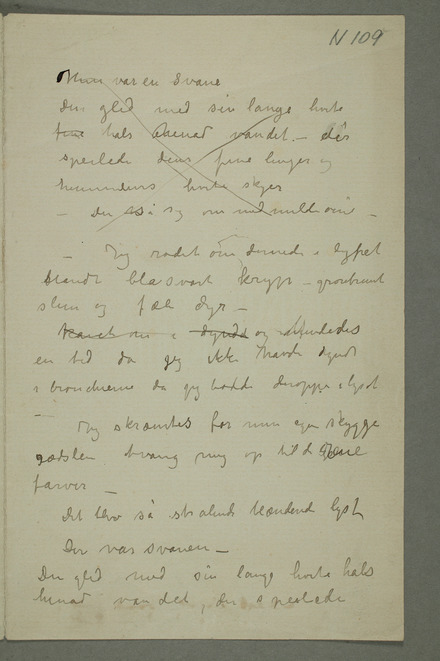 N 109
Hun var en Svane
Den gled med sin lange hvite
fine hals henad vandet. – dér
speilede dens fine linjer og
himmelens hvite skyer
– Den så sig om med milde øine –
– Jeg rodet om dernede i dybet
blandt blåsvart kryp – grønbrunt
slim og fæle dyr –
og mindedes
en tid da jeg ikke havde dynd
i bronchierne da jeg bodde deroppe i lyset
–
Jeg skræmtes for min egen skygge
rædslen tvang mig op til de rene
farver –
Det blev så strålende blændende lyst
Der var svanen –
Den gled med sin lange hvite hals
henad vandet, der speilede